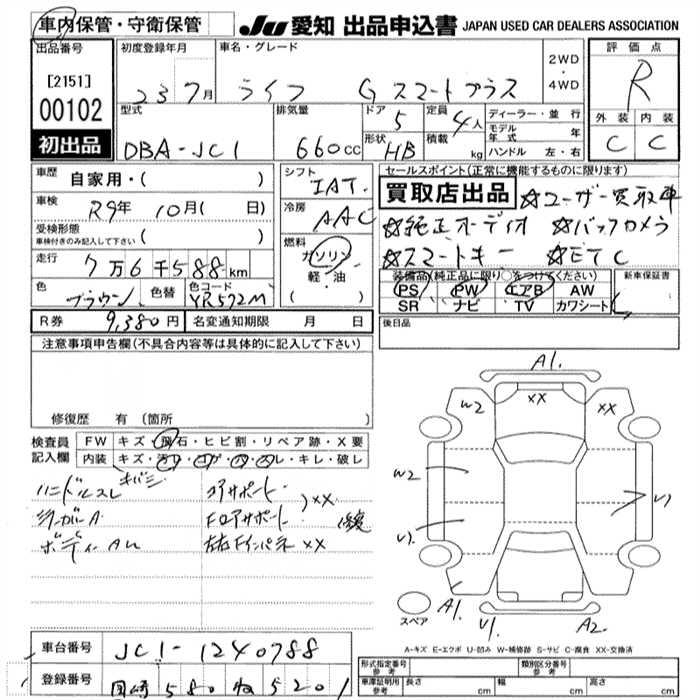 車内保管・守衛保管
JU 愛知 出品申込書 JAPAN USED CAR DEALERS ASSOCIATION
出品番号
[2151]
00102
初出品
初度登録年月
23 7月
車名・グレード
ライフ G スマートプラス
2WD
・
4WD
評価点
R
外装 内装
C C
型式
DBA-JC1
排気量
660cc
ドア
5
形状
HB
定員
4人
積載
kg
ディーラー・並行
モデル年式 年
ハンドル 左・右
車歴
自家用・( )
車検
R9年 10月( 日)
受検形態
車検付きのみ記入して下さい ( )
走行
7万6千588km
色
ブラウン
色替
色コード
YR572M
シフト
IAT.
冷房
AAC
燃料
ガソリン
軽・油
( )
セールスポイント(正常に機能するものに限ります)
買取店出品 ☆ユーザー買取車
☆純正オーディオ ☆バックカメラ
☆スマートキー ☆ETC
装備品(純正品に限り○をつけてください)
PS PW エアB AW
SR ナビ TV カワシート
新車保証書
後日品
R券 9,380円 名変通知期限 月 日
注意事項申告欄(不具合内容等は具体的に記入して下さい)
修復歴 有(箇所
検査員記入欄
FW キズ・飛石・ヒビ割・リペア跡・X要
内装 キズ・汚れ・コゲ・穴・スレ・キレ・破レ
ハンドルスレ
ボディーAU
コアサポート
Fロアサポート
左右Fインパネ XX
XX
A1.
W2
XX
XX
W2
A1.
A2.
スペア
A-キズ E-エクボ U-凹み W-補修跡 S-サビ C-腐食 XX-交換済
車台番号 JC1-1240788
登録番号 岡崎 580 ね 5201
形式指定番号 参考
類別区分番号 参考
車庫証明用 参考 長さ cm 幅 cm 高さ cm